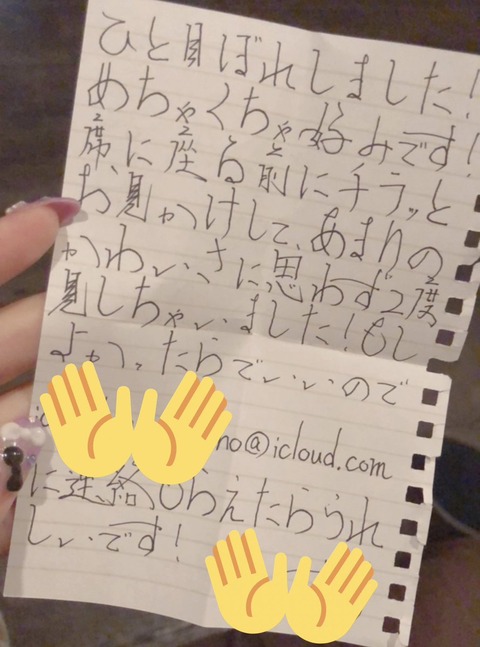 ひと目ぼれしました!
めちゃくちゃ好みです!
席に座る前にチラッと
お見かけして、あまりの
かわいさに思わず2度
見しちゃいました!もし
よかったらでいいので
no@icloud.com
に連絡もらえたらうれ
しいです!